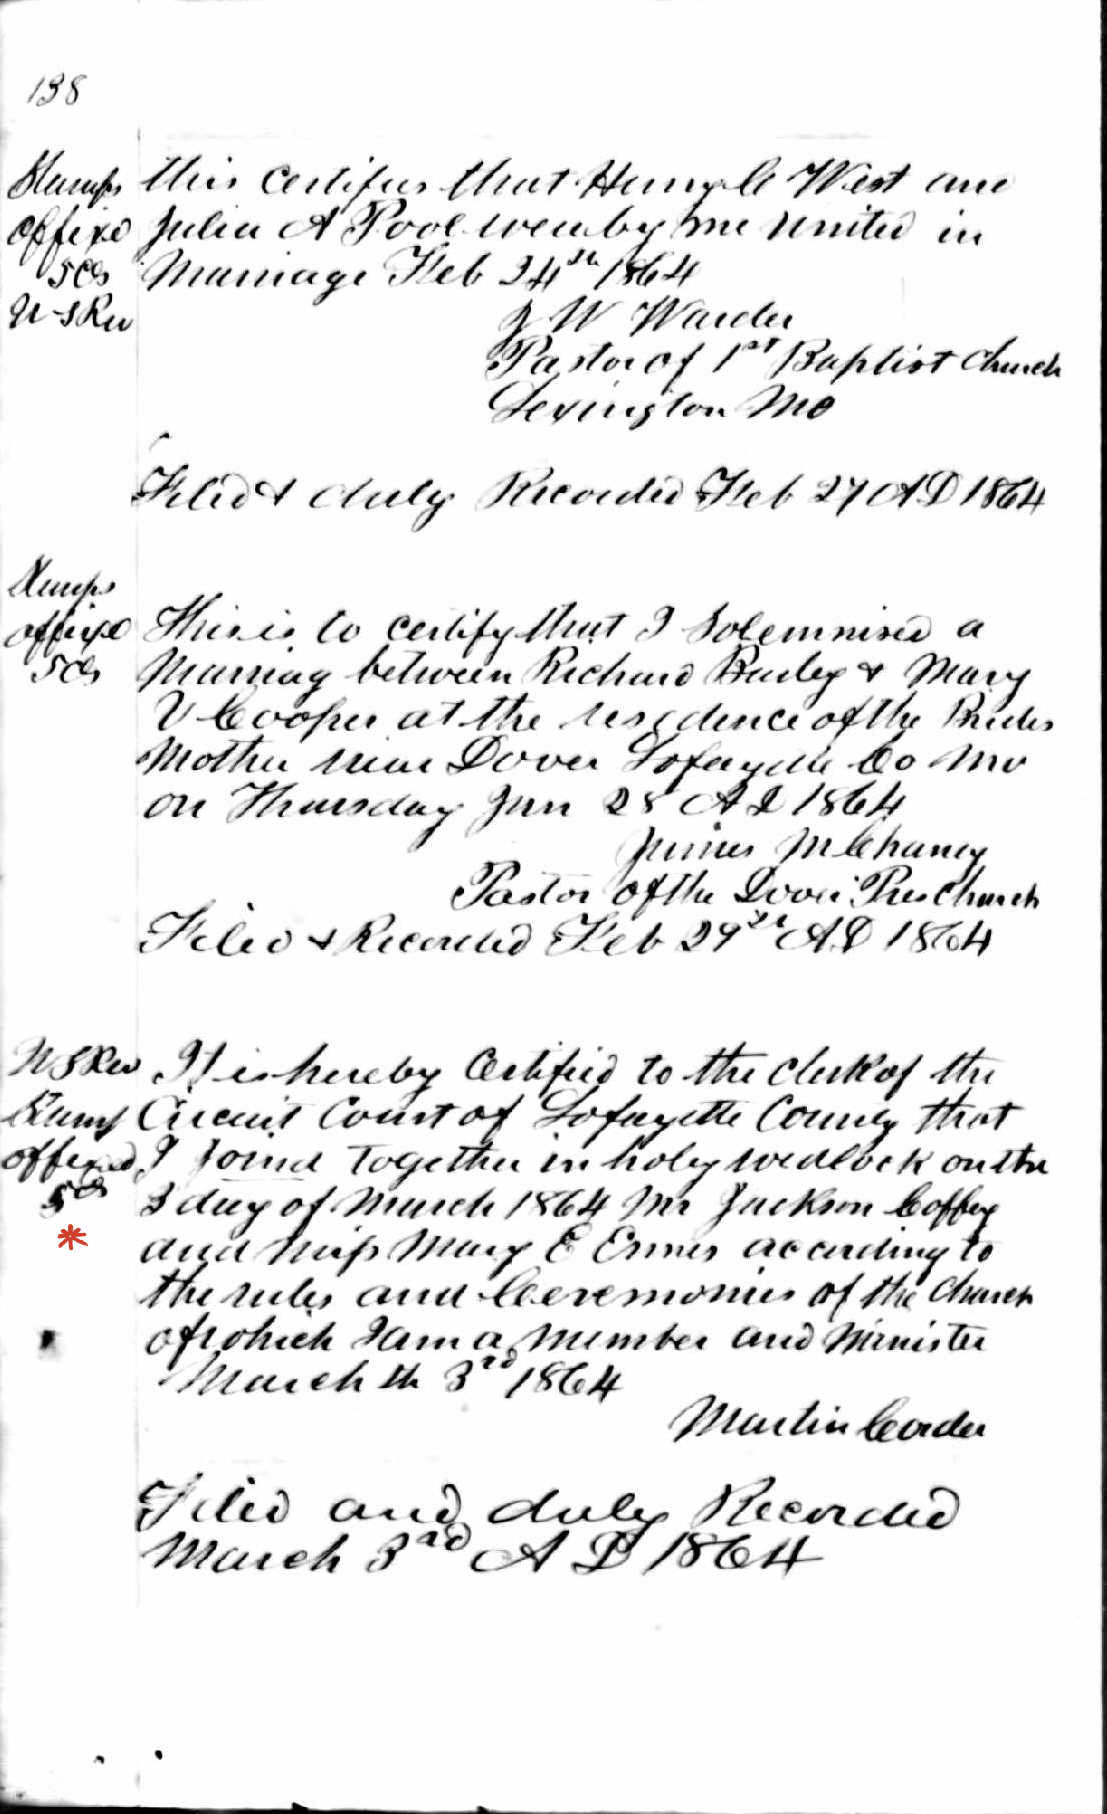 138
Stamps
affixed
5cts
U-S Rev
this certifies that Henry C West and
Julia A Pool were by me united in
Marriage Feb 24th 1864
J W Warder
Pastor of 1st Baptist Church
Lexington Mo
Filed & duly Recorded Feb 27 AD 1864
Stamps
affixed
5cts
This is to certify that I Solemnised a
Marriag between Richard & Mary
V Cooper at the residence of the Brides
Mother near Dover Lafayette Co Mo
on Thursday Jan 28 AD 1864
James M Chaney
Pastor of the Dover Pres Church
Filed & Recorded Feb 29th AD 1864
U S Rev
Stamp
affixed
5cts
It is hereby Certified to the Clerk of the
Circuit Court of Lafayette County that
I Joined Together in holy wedlock on the
3 day of March 1864 Mr Jackson Coffey
and Miss Mary E Ennes according to
the rules and Ceeremonies of the Church
of which I am a Member and Minister
March th 3rd 1864
Martin Corder
Filed and duly Recorded
March 3rd A D 1864